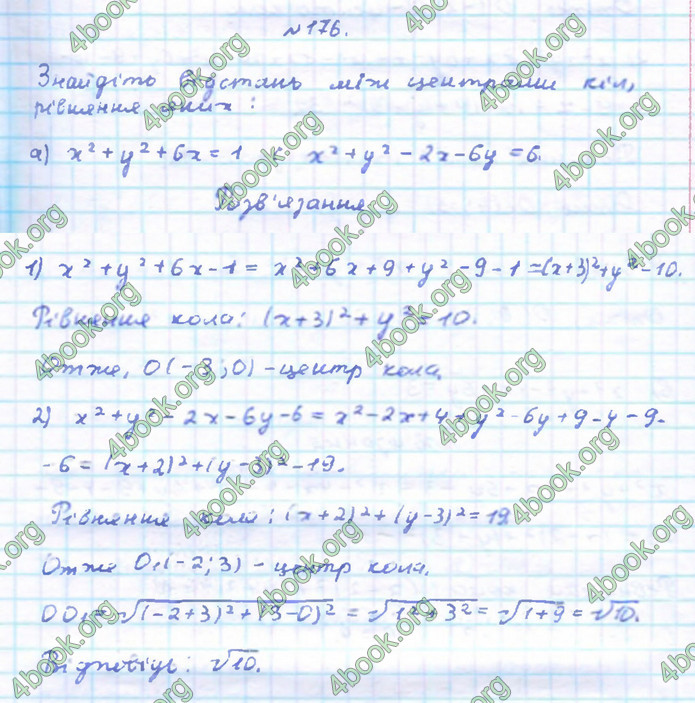 №176.
Знайдіть відстань між центрами кіл,
рівняння яких:
а) x² + y² + 6x = 1 і x² + y² - 2x - 6y = 6.
Розв'язання
1) x² + y² + 6x - 1 = x² + 6x + 9 + y² - 9 - 1 = (x+3)² + y² - 10.
Рівняння кола: (x+3)² + y² = 10.
Отже, O(-3; 0) - центр кола.
2) x² + y² - 2x - 6y - 6 = x² - 2x + 4 + y² - 6y + 9 - 4 - 9 -
- 6 = (x+2)² + (y-3)² - 19.
Рівняння кола: (x+2)² + (y-3)² = 19
Отже O₁(-2; 3) - центр кола.
OO₁ = √(-2+3)² + (3-0)² = √1² + 3² = √1+9 = √10.
Відповідь: √10.
4book.org